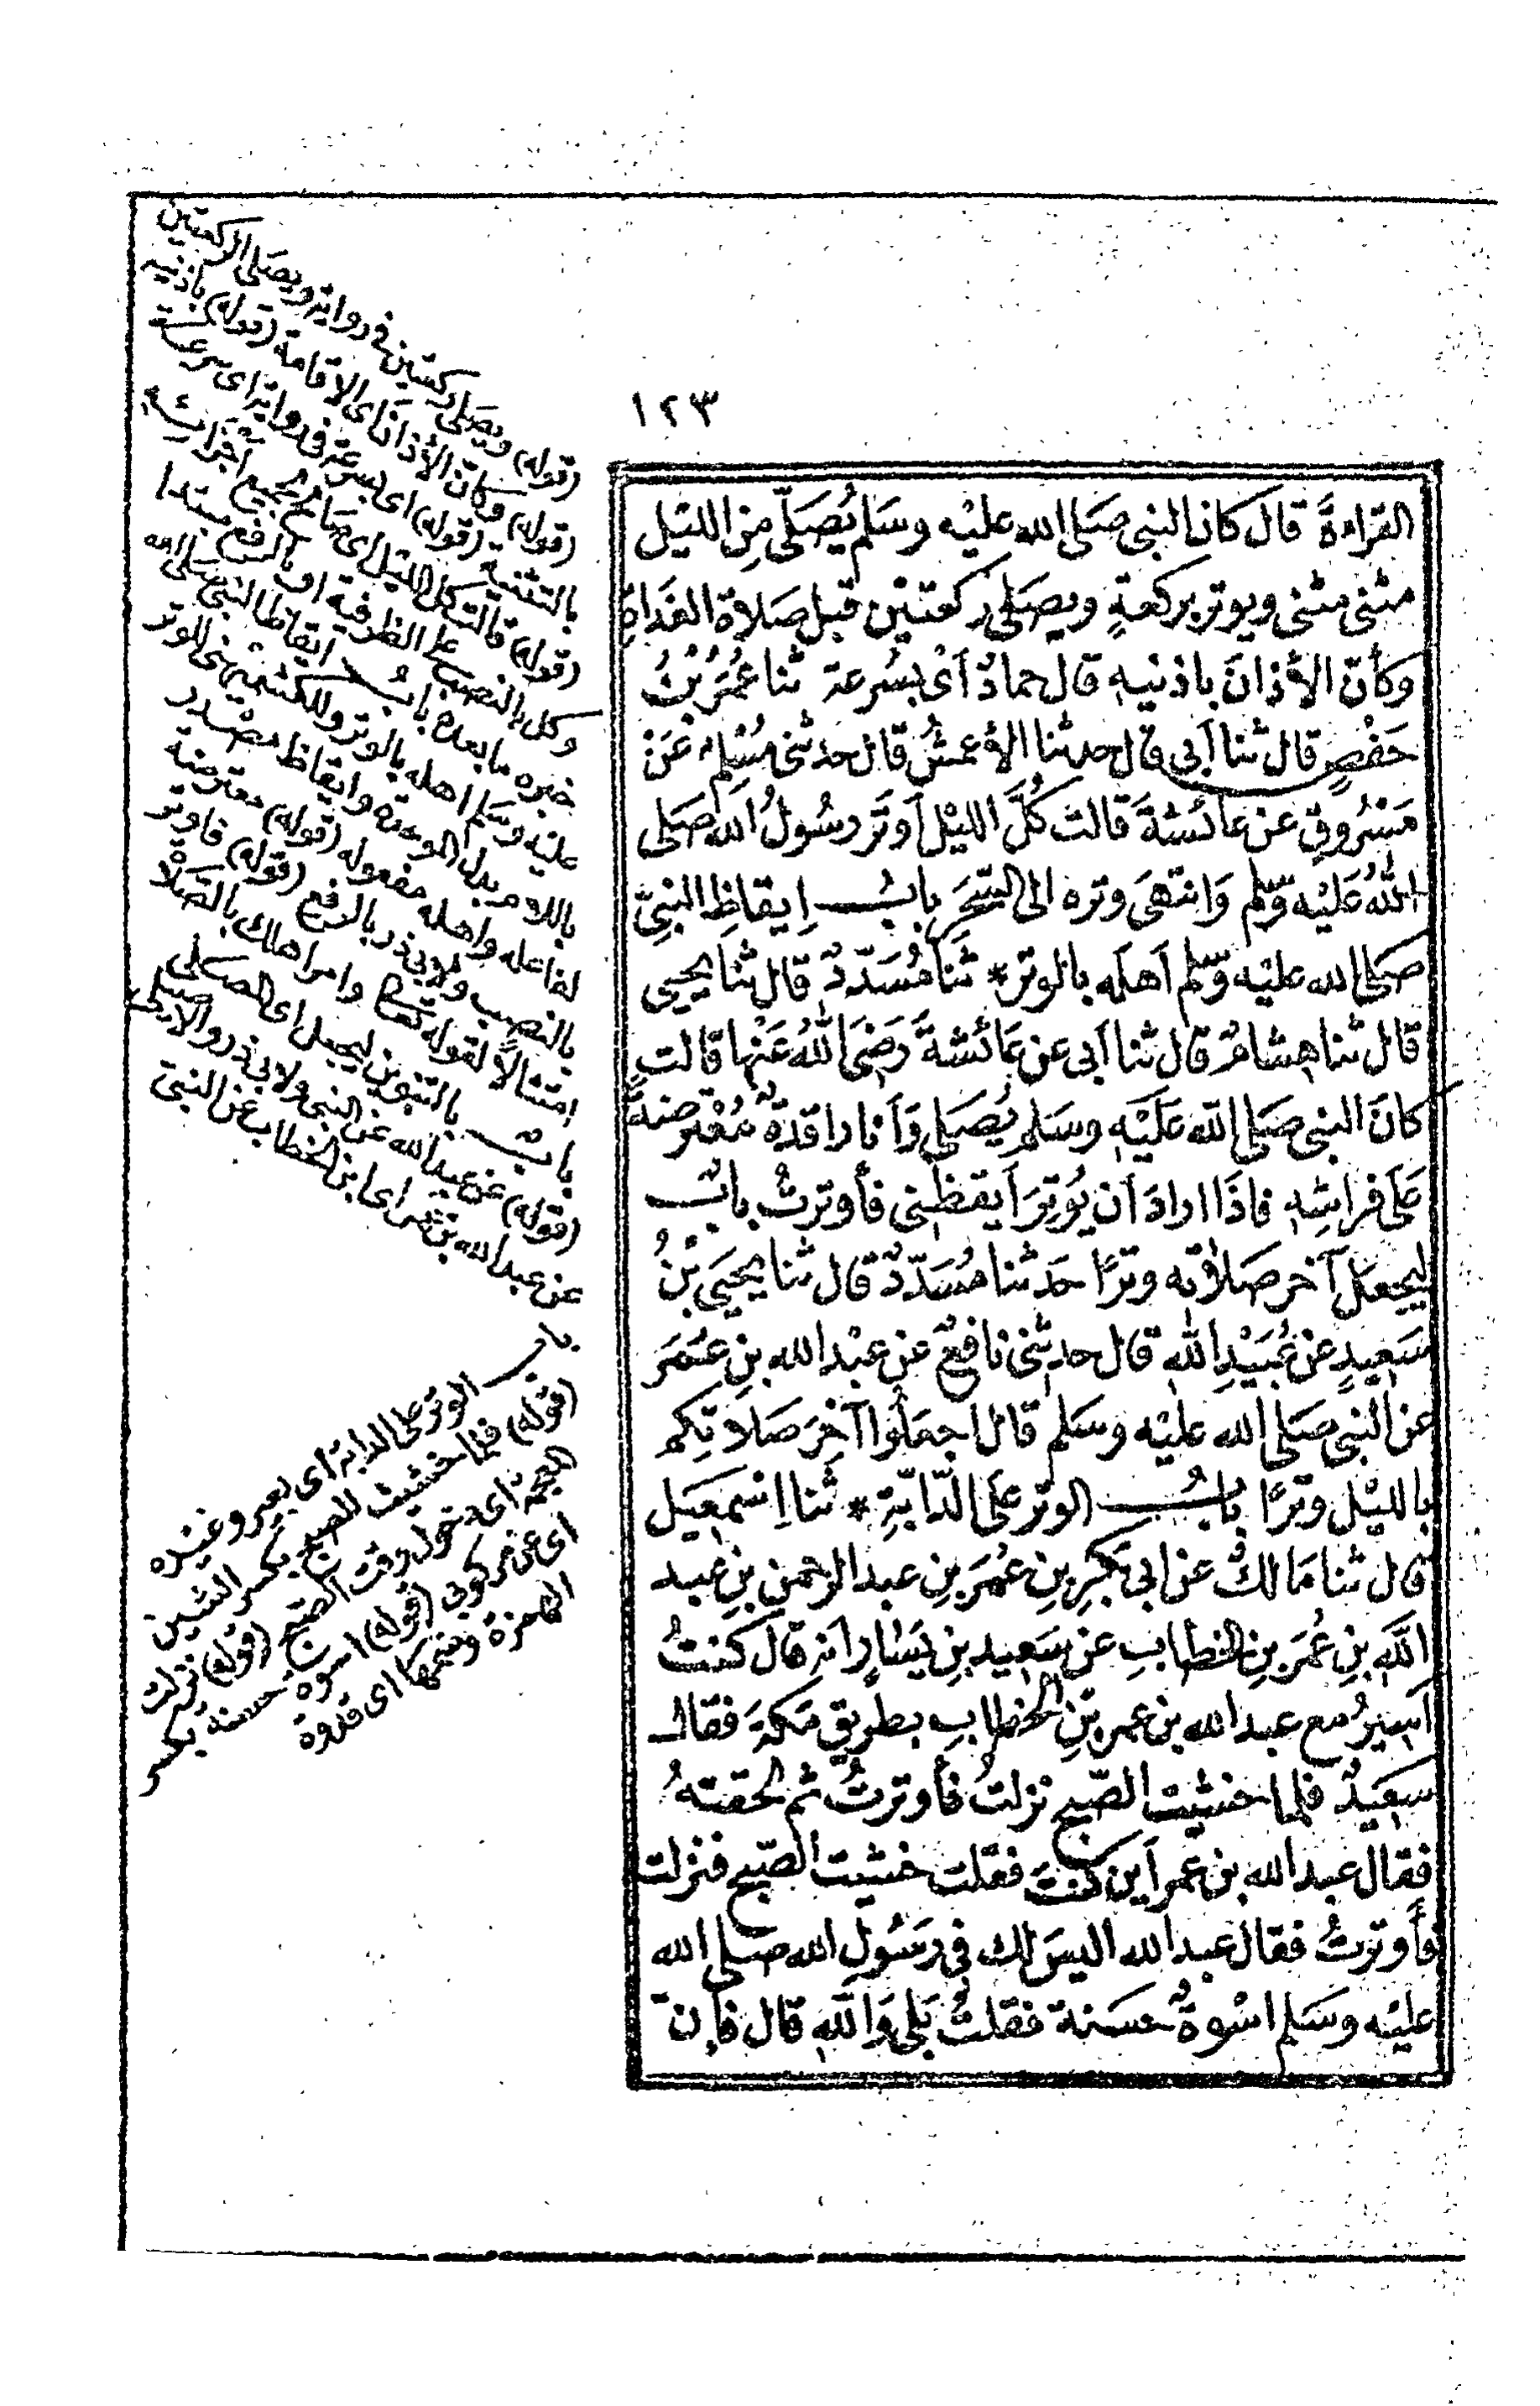 ١٢٣
القراءةَ قال كان النبى صَلى الله عليْه وسَلم يُصَلّى مِن الليْل
مثنى مثنى ويوتر بركعةٍ ويصَلى ركعتيْن قبل صَلاة الغَداةِ
وكأنّ الأذانَ باذنيه قال حمادٌ اَىْ بسُرعة ثنا عُمَرُ بْنُ
حَفْصٍ قال ثنا اَبى قال حدثنا الأعمشُ قال حدثنى مُسْلِم عَنْ
مَسْرُوقٍ عن عائشةَ قالت كُلَّ الليْل اَوتَر رسُولُ الله صَلى
اللهُ عَلَيْه وسّلم وَانتهىَ وتره الى السَّحَرِ بابُ اِيقاظِ النبِىّ
صَلى الله عليْه وسّلم اَهلَه بالوتر * ثنا مُسَدّدٌ قال ثنا يحيى
قال ثنا هِشامٌ قال ثنا اَبى عن عَائشةَ رَضىَ اللهُ عَنْها قالت
كانَ النبى صَلى اللهِ عَلَيْه وسَلم يُصَلى وَاَنا راقدةٌ مُعْترضةً
عَلَى فراشِه فاذَا ارادَ اَن يُوتِرَ اَيقظنى فأوترتُ بابٌ
ليجعَل آخر صَلاته وترًا حَدثنا مُسَدّدٌ قال ثنا يحيىَ بْنُ
سَعِيدٍ عن عُبَيْدِ اللهِ قال حدثنى نافِعٌ عن عبْد الله بنِ عُمَر
عن النبى صَلى الله عليْه وسَلم قال اجعَلُوا آخِرَ صَلاتِكم
بالليْل وترًا بابُ الوتر عَلَى الدّابّةِ * ثنا اِسْمعِيَل
قال ثنا مَالكٌ عن ابى بَكرِ بنِ عُمَرَ بنِ عبد الرحمنِ بنِ عبد
اللهِ بنِ عُمَرَ بنِ الخطابِ عن سَعِيد بنِ يَسَارٍ انه قال كنتُ
اَسِيرُ مع عبد الله بن عمر بنِ الخطابِ بطريق مَكةَ فقال
سَعِيدٌ فلما خشيت الصّبح نزلتُ فأوترتُ ثم لحقتهُ
فقال عبد الله بن عمر اَين كنتَ فقلت خشيت الصّبح فنزلت
فأوترتُ فقال عبد الله اليسَ لك فى رَسُولِ الله صَلى الله
عليْه وسَلم اسْوةٌ حسَنة فقلتُ بَلى وَاللهِ قال فاِنّ
(قوله) ويصَلى ركعتين فى رواية ويصَلى الركعتين
(قوله) وكانّ الأذان اى الاقامة (قوله) باذنيه
بالتثنية (قوله) اى بسرعة فى رواية اى سرعة
(قوله) قالت كل الليل اى صَالح لجميع اجزائه
وكل بالنصب على الظرفية او بالرفع مبتدا
خبره ما بعده باب ايقاظ النبى صَلى الله
عليه وسَلم اهله بالوتر وللكشميهنى للوتر
باللام بدل الموحدة وايقاظ مصدر
لفاعله واهله مفعوله (قوله) معترضة
بالنصب ولابى ذر بالرفع (قوله) فاوتر
امتثالاً لقوله تعالى وامر اهلك بالصّلاة
باب بالتنوين ليجعل اى المصَلى
(قوله) عن عبيد الله عن النبى ولابى ذر والاصيلى
عن عبد الله بن عمر اى ابن الخطاب عن النبى
باب الوتر على الدابة اى بعير وغيره
(قوله) فلما خشيت الصبح بكسر الشين
المعجمة اى دخول وقت الصّبح (قوله) نزلت
اى عن مركوبى (قوله) اسوة حسنة بكسر
الهمزة وضمها اى قدوة